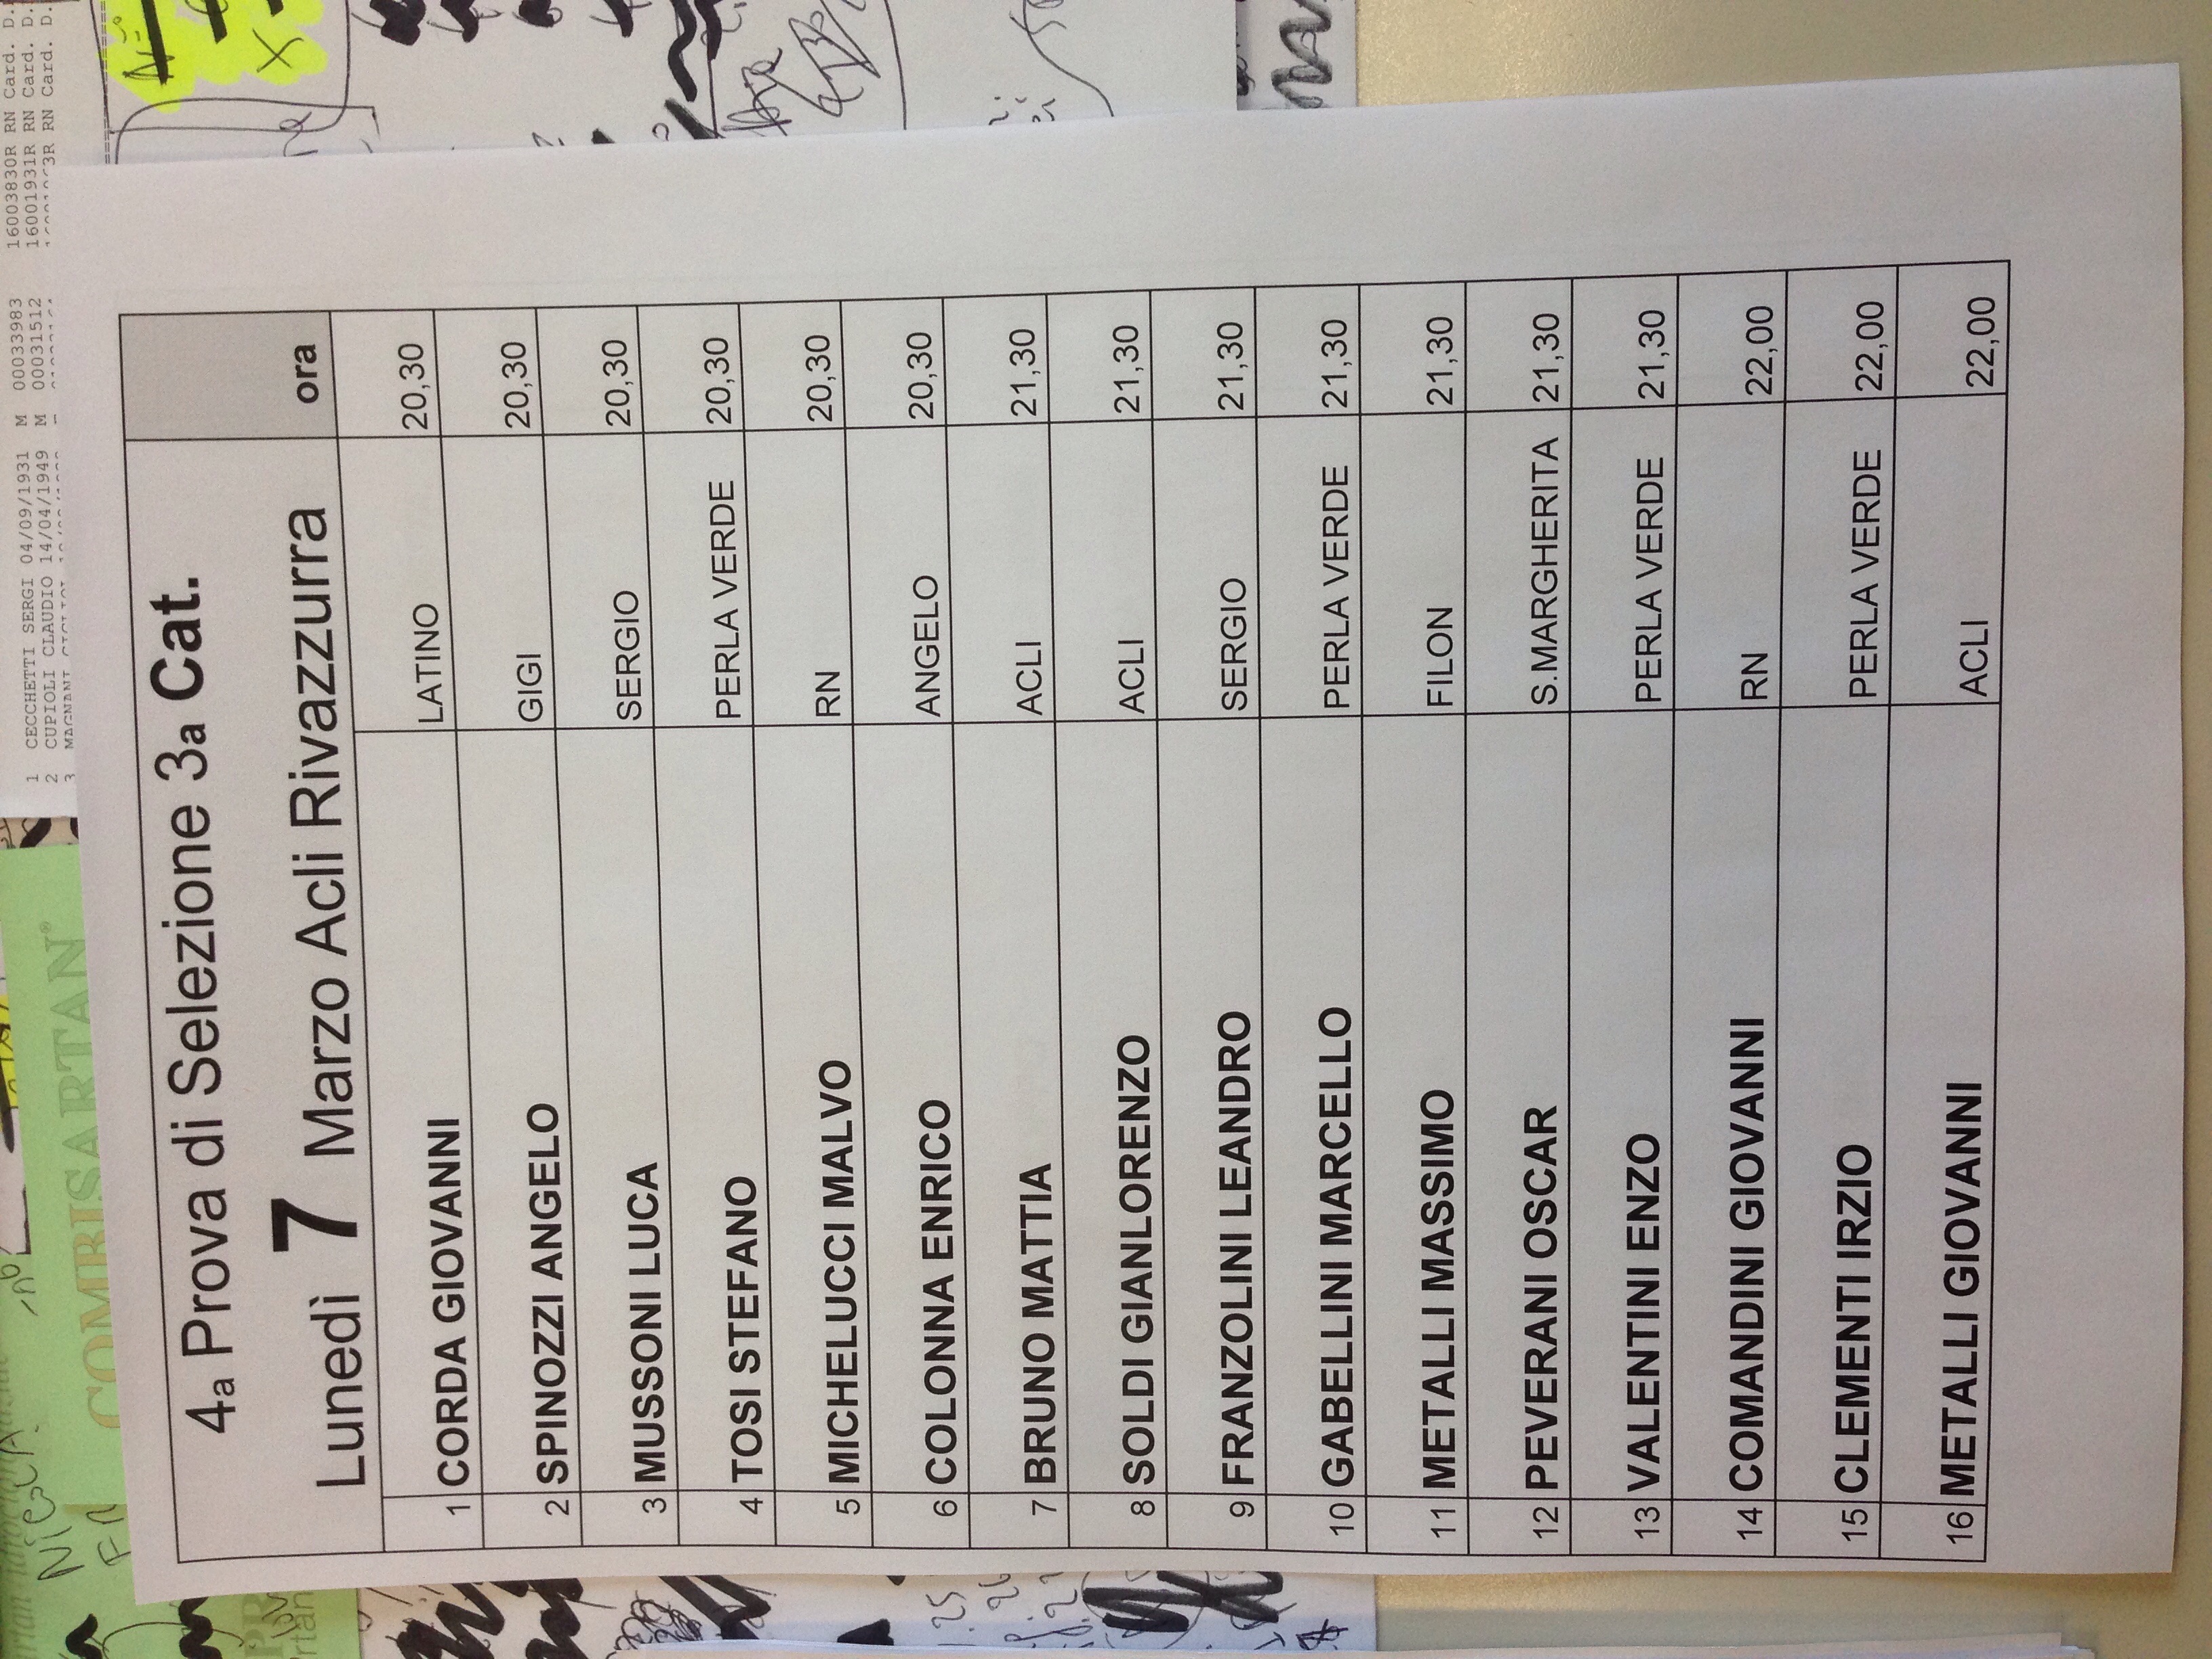 4a Prova di Selezione 3a Cat.
Lunedì 7 Marzo Acli Rivazzurra ora
1 CORDA GIOVANNI LATINO 20,30
2 SPINOZZI ANGELO GIGI 20,30
3 MUSSONI LUCA SERGIO 20,30
4 TOSI STEFANO PERLA VERDE 20,30
5 MICHELUCCI MALVO RN 20,30
6 COLONNA ENRICO ANGELO 20,30
7 BRUNO MATTIA ACLI 21,30
8 SOLDI GIANLORENZO ACLI 21,30
9 FRANZOLINI LEANDRO SERGIO 21,30
10 GABELLINI MARCELLO PERLA VERDE 21,30
11 METALLI MASSIMO FILON 21,30
12 PEVERANI OSCAR S.MARGHERITA 21,30
13 VALENTINI ENZO PERLA VERDE 21,30
14 COMANDINI GIOVANNI RN 22,00
15 CLEMENTI IRZIO PERLA VERDE 22,00
16 METALLI GIOVANNI ACLI 22,00
1 CECCHETTI SERGI 04/09/1931 M 00033983 16003830R RN Card. D.
2 CUPIOLI CLAUDIO 14/04/1949 M 00031512 16001931R RN Card. D.
3 RN Card. D.
COMBISARTAN®